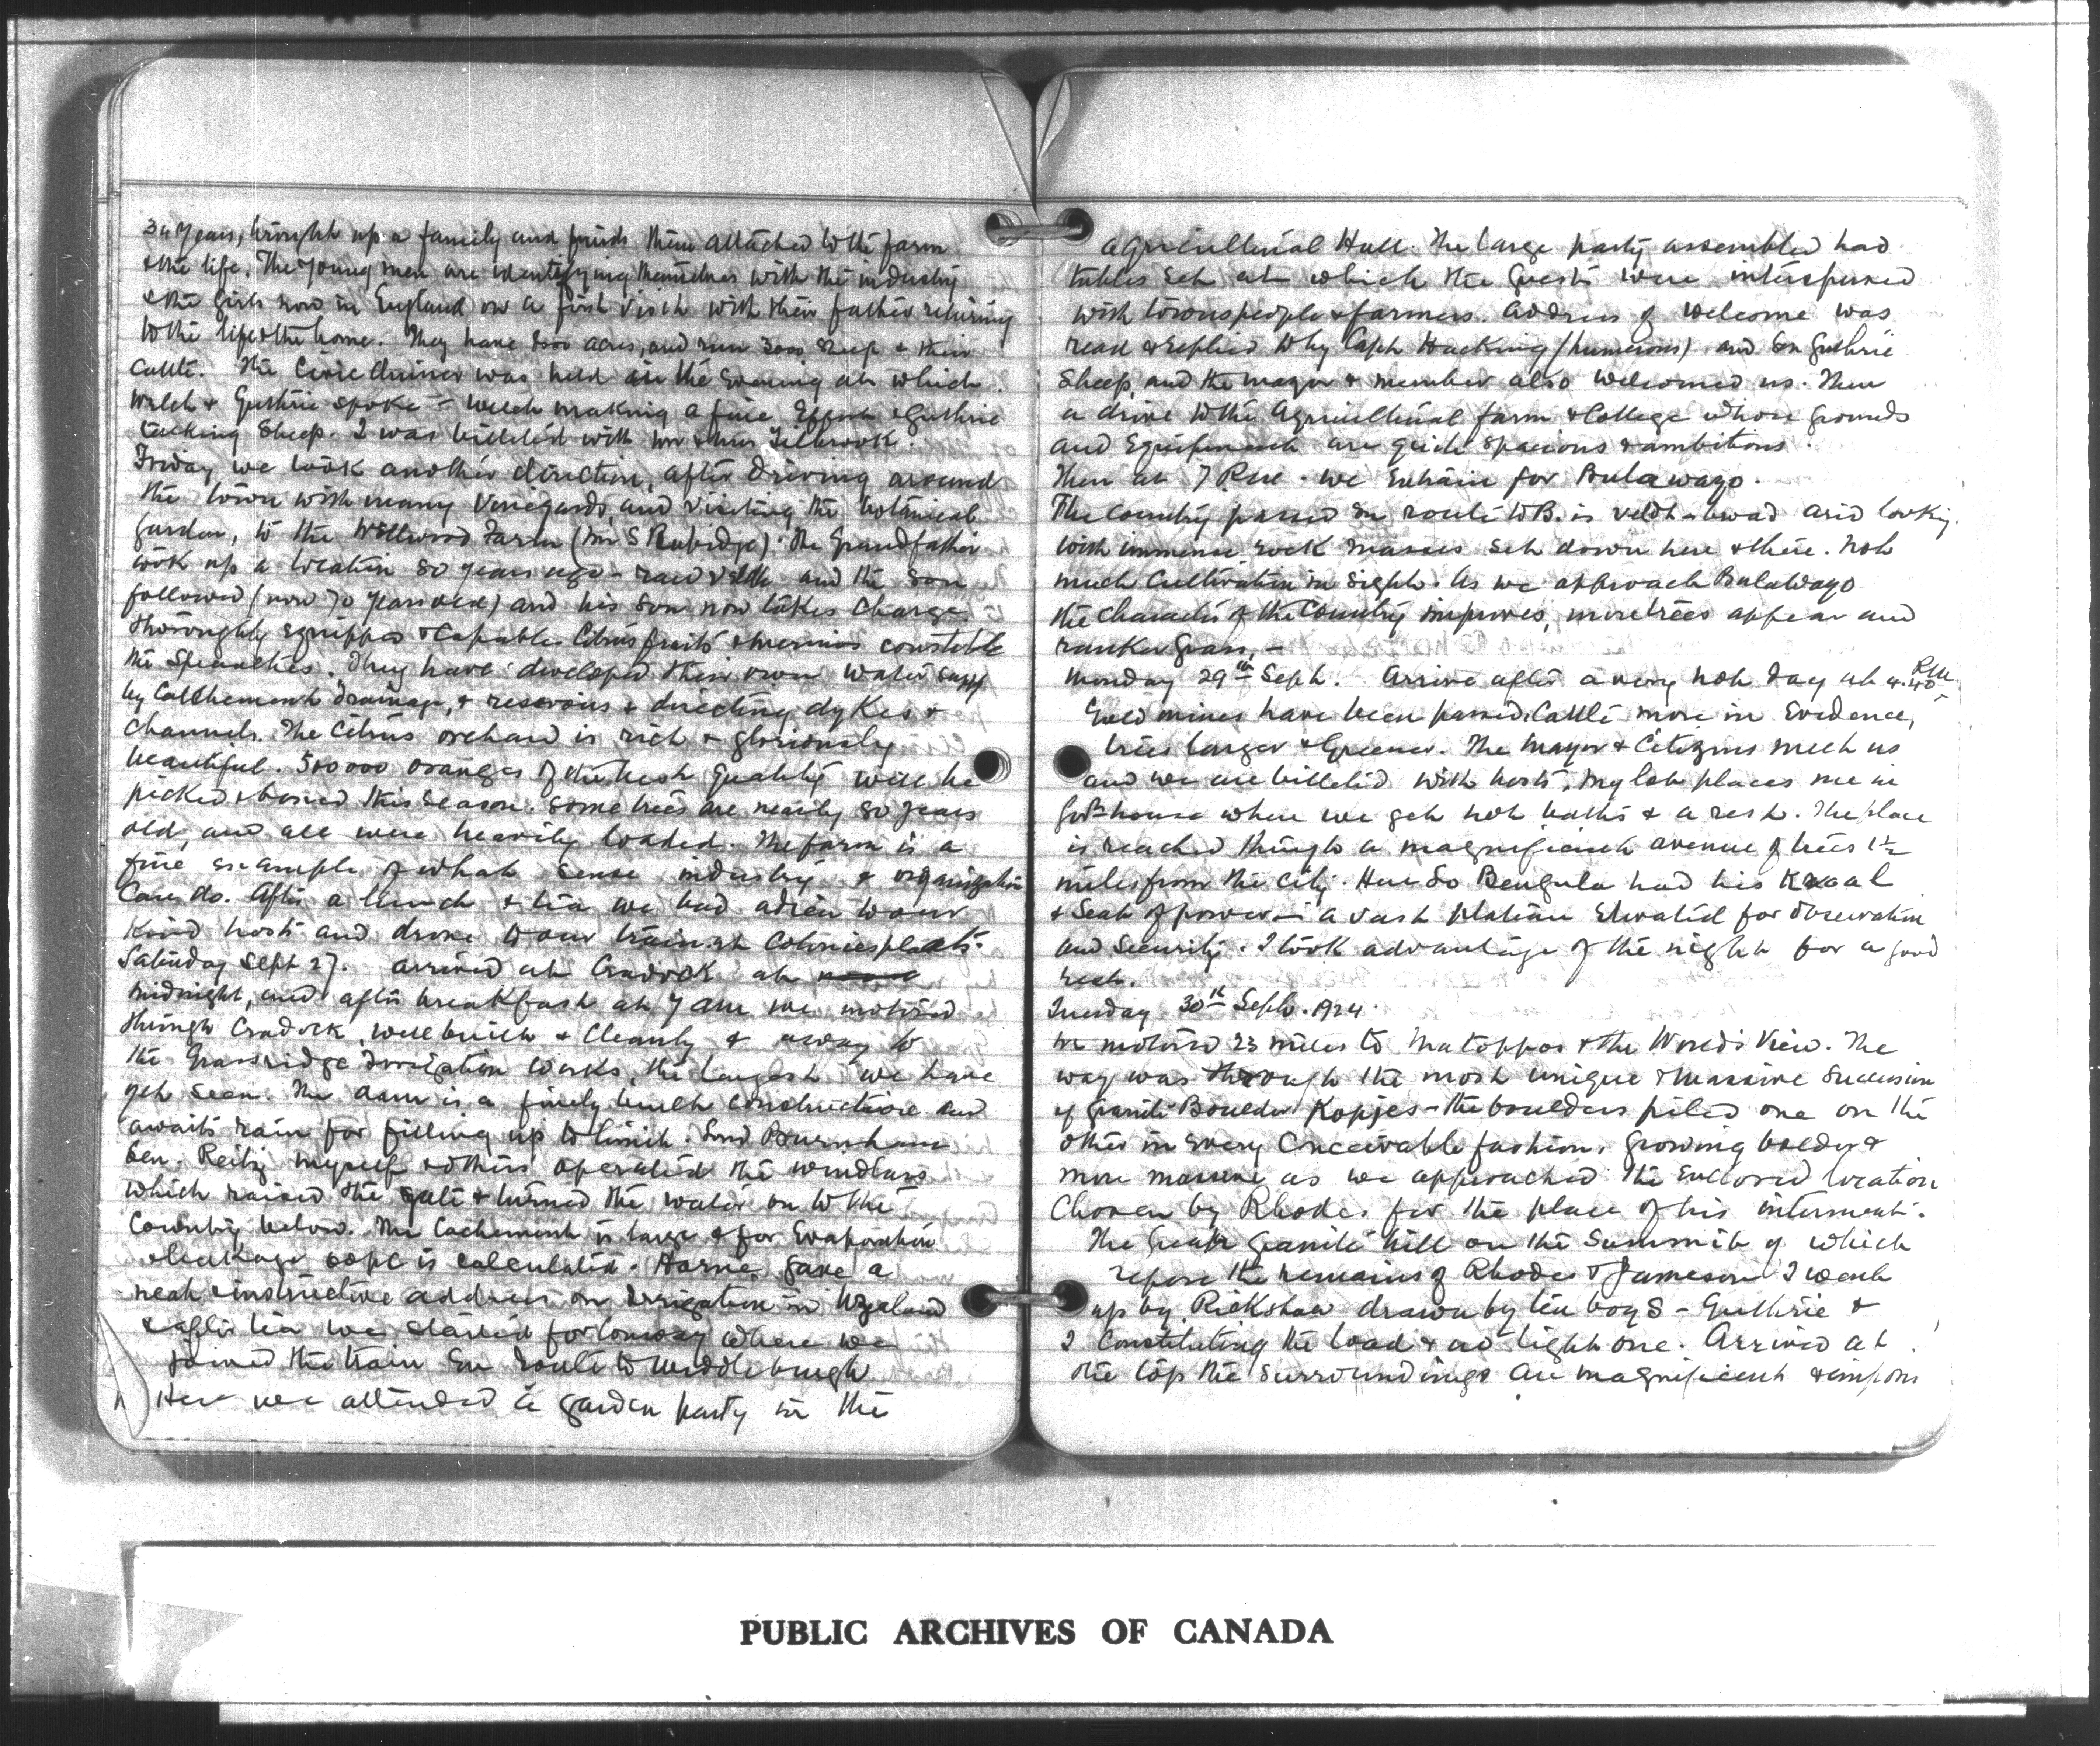 34 years, brought up a family and finds them attached to the farm
& the life. The young men are identifying themselves with the industry
& the girls now in England on a first visit with their father returning
to the life & the home. They have 8000 acres, and run 3000 sheep & then
cattle. The Civic dinner was held in the Evening at which
Welch & Guthrie spoke - Welch making a fine Effort & Guthrie
talking Sheep. I was billeted with Mr & Mrs Tilbrook.
Friday we took another direction, after driving around
the town with many Vineyards, and visiting the botanical
garden, to the Wellwood Farm (Mr S Rubidge). The Grandfather
took up a location 80 years ago - raw veldt and the son
followed (now 70 years old) and his son now takes charge.
Thoroughly equipped & capable. Citrus fruits & merinos constitute
the specialties. They have developed their own water supply
by Catchement drainage, & resevoirs & directing dykes &
Channels. The Citrus orchard is rich & gloriously
beautiful. 500000 oranges of the best Quality will be
picked & boxed this season. Some trees are nearly 80 years
old, and all were heavily loaded. The farm is a
fine example of what sense industry & organization
Can do. After a lunch & tea we bad adieu to our
kind hosts and drove to our train at Coloniesplaats.
Saturday Sept 27. arrived at Cradock at
midnight, and after breakfast at 7 am we motored
through Cradock, well built & cleanly & away to
the Grassridge Irrigation works, the largest we have
yet seen. The dam is a finely built construction and
awaits rain for filling up to limit. Lord Burnham
Gen. Reitz myself & others operated the windlass
which raised the gate & turned the water on to the
Country below. The Cachement is large & for Evaporation
& leakage is calculated. Horne gave a
neat & instructive address on Irrigation in N Zealand
& after tea we started for Conway where we
joined the train En route to Middleburgh
Here we attended a garden party in the
agricultural Hall. The large party assembled had
tables set at which the Guests were interspersed
with townspeople & farmers. Address of welcome was
read & replied to by Capt Hacking (humerous) and Sn Guthrie
Sheep, and the mayor & member also welcomed us. Then
a drive to the Agricultural farm & College whose grounds
and Equipment are quite spacious & ambitious.
Then at 7 P.M. we Entrain for Bulawayo.
The Country passed En route to B. is veldt - broad arid looking
with immense rock masses set down here & there. Not
much Cultivation in sight. As we approach Bulawayo
the character of the Country improves, more trees appear and
ranker grass, -
Monday 29th Sept. Arrive after a very hot day at 4.40 P.M.
Gold mines have been passed. Cattle more in Evidence,
trees larger & Greener. The Mayor & Citizens meet us
and we are billeted with hosts, my lot places me in
Govt house where we get hot baths & a rest. The place
is reached through a magnificent avenue of trees 1½
miles from the city. Here Lo Bengula had his Kraal
& Seat of power - a vast plateau Elevated for observation
and security. I took advantage of the night for a good
rest.
Tuesday 30th Sept. 1924.
We motored 23 miles to Matoppos & the Worlds View. The
way was through the most unique & massive Succession
of Granite Boulder Kopjes - the boulders piled one on the
other in Every Conceivable fashion, growing bolder &
more massive as we approached the Enclosed location
Chosen by Rhodes for the place of his interment.
The Great Granite hill on the Summit of which
repose the remains of Rhodes & Jameson I went
up by Rickshaw drawn by ten boys - Guthrie &
I Constituting the load & no light one. Arrived at
the top the surroundings are magnificent & impos
PUBLIC ARCHIVES OF CANADA